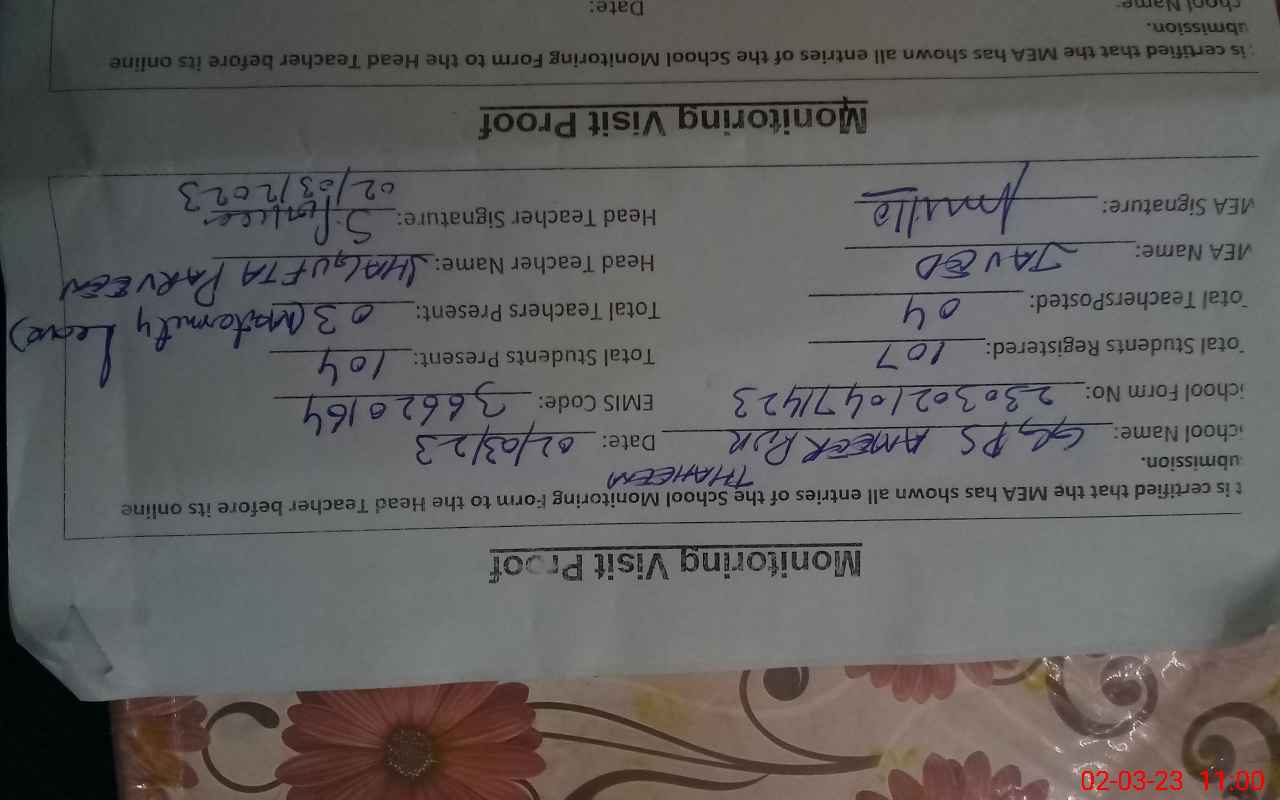 Monitoring Visit Proof
t is certified that the MEA has shown all entries of the School Monitoring Form to the Head Teacher before its online
ubmission.
THAHEEM
chool Name: GGPS AMEER PUR Date: 02/03/23
chool Form No: 230302104711423 EMIS Code: 36620164
Total Students Registered: 107 Total Students Present: 104
Total TeachersPosted: 04 Total Teachers Present: 03 (Maternity Leave)
MEA Name: JAVED Head Teacher Name: SHAGUFTA PARVEEN
MEA Signature: Head Teacher Signature:
02/03/2023
Monitoring Visit Proof
is certified that the MEA has shown all entries of the School Monitoring Form to the Head Teacher before its online
ubmission.
chool Name: Date:
02-03-23 11:00